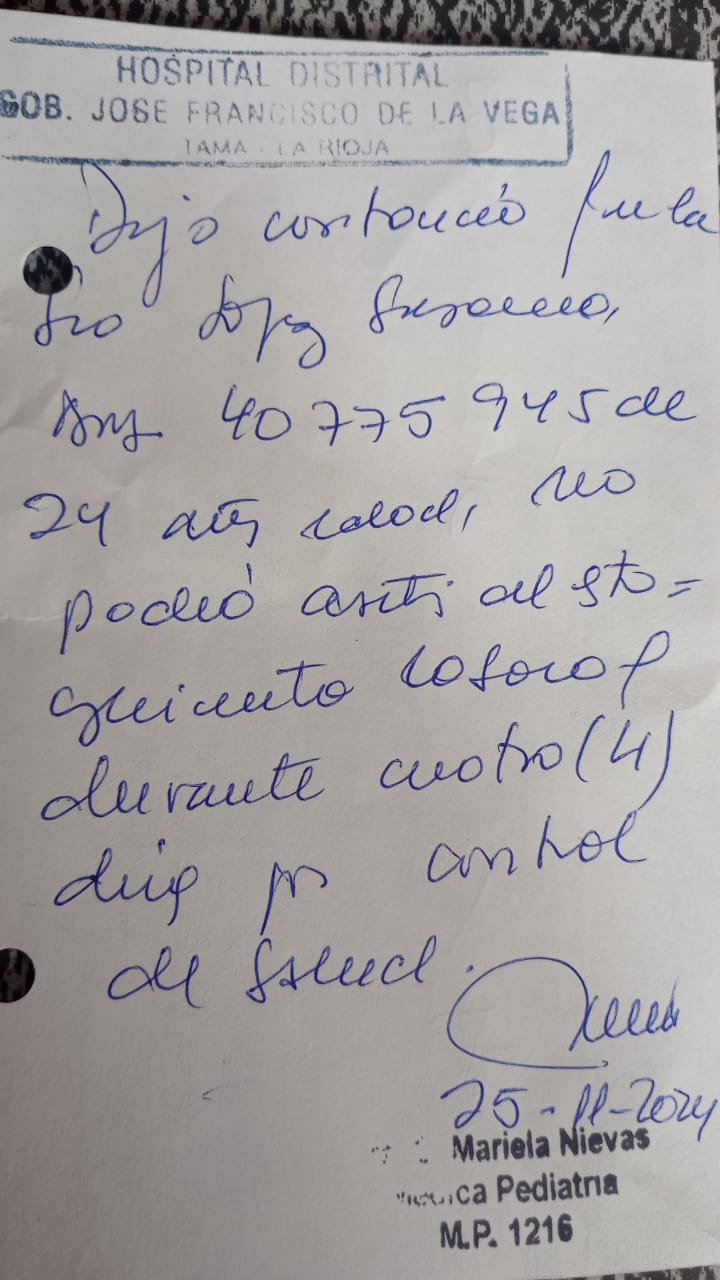 HOSPITAL DISTRITAL
GOB. JOSE FRANCISCO DE LA VEGA
TAMA - LA RIOJA
Dejo constancia que la
Sra Lopez
DNI 40775945 de
24 años edad, no
podrá asistir al
durante cuatro (4)
días por control
de salud.
25-11-2024
Mariela Nievas
Pediatria
M.P. 1216